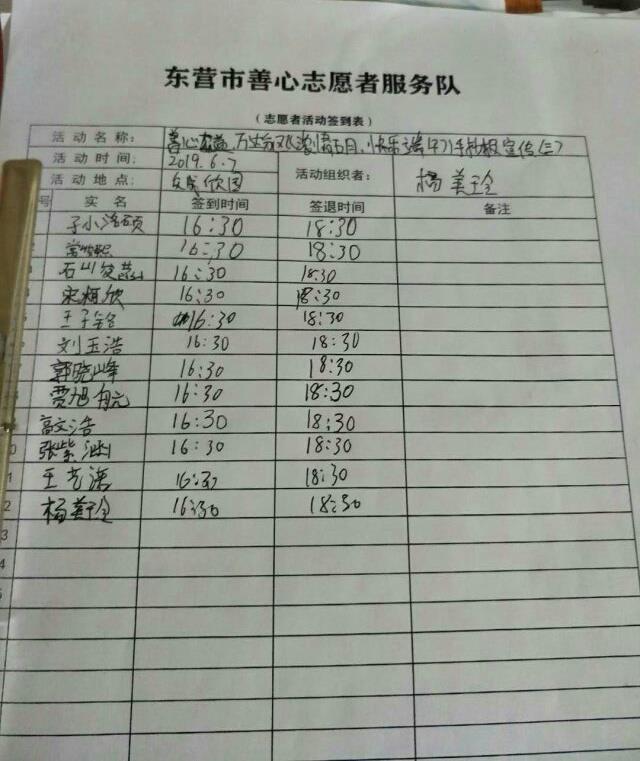 东营市善心志愿者服务队
（志愿者活动签到表）
活动名称： 善心 浓情五月，快乐 手抄报宣传(三)
活动时间： 2019.6.7
活动地点： 欣园 活动组织者： 杨美玲
号 实名 签到时间 签退时间 备注
16:30 18:30
16:30 18:30
石山 16:30 18:30
宋栩欣 16:30 18:30
王子铭 16:30 18:30
刘玉浩 16:30 18:30
郭晓峰 16:30 18:30
贾旭 16:30 18:30
高文浩 16:30 18:30
张紫 16:30 18:30
1 王艺 16:30 18:30
2 杨美玲 16:30 18:30
3
4
5